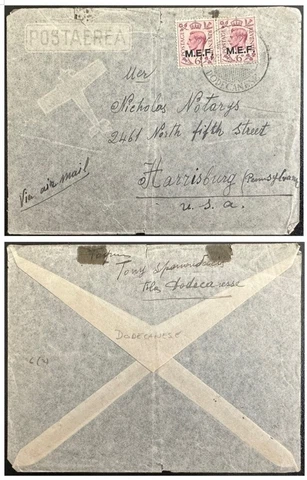 POSTAEREA
M.E.F. M.E.F.
DODECANESE
Mer
Nicholas Notarys
2461 North fifth street
Harrisburg (Pennsylvania)
u. s. a.
Via air mail
Tony
Dodecanesse
DODECANESE